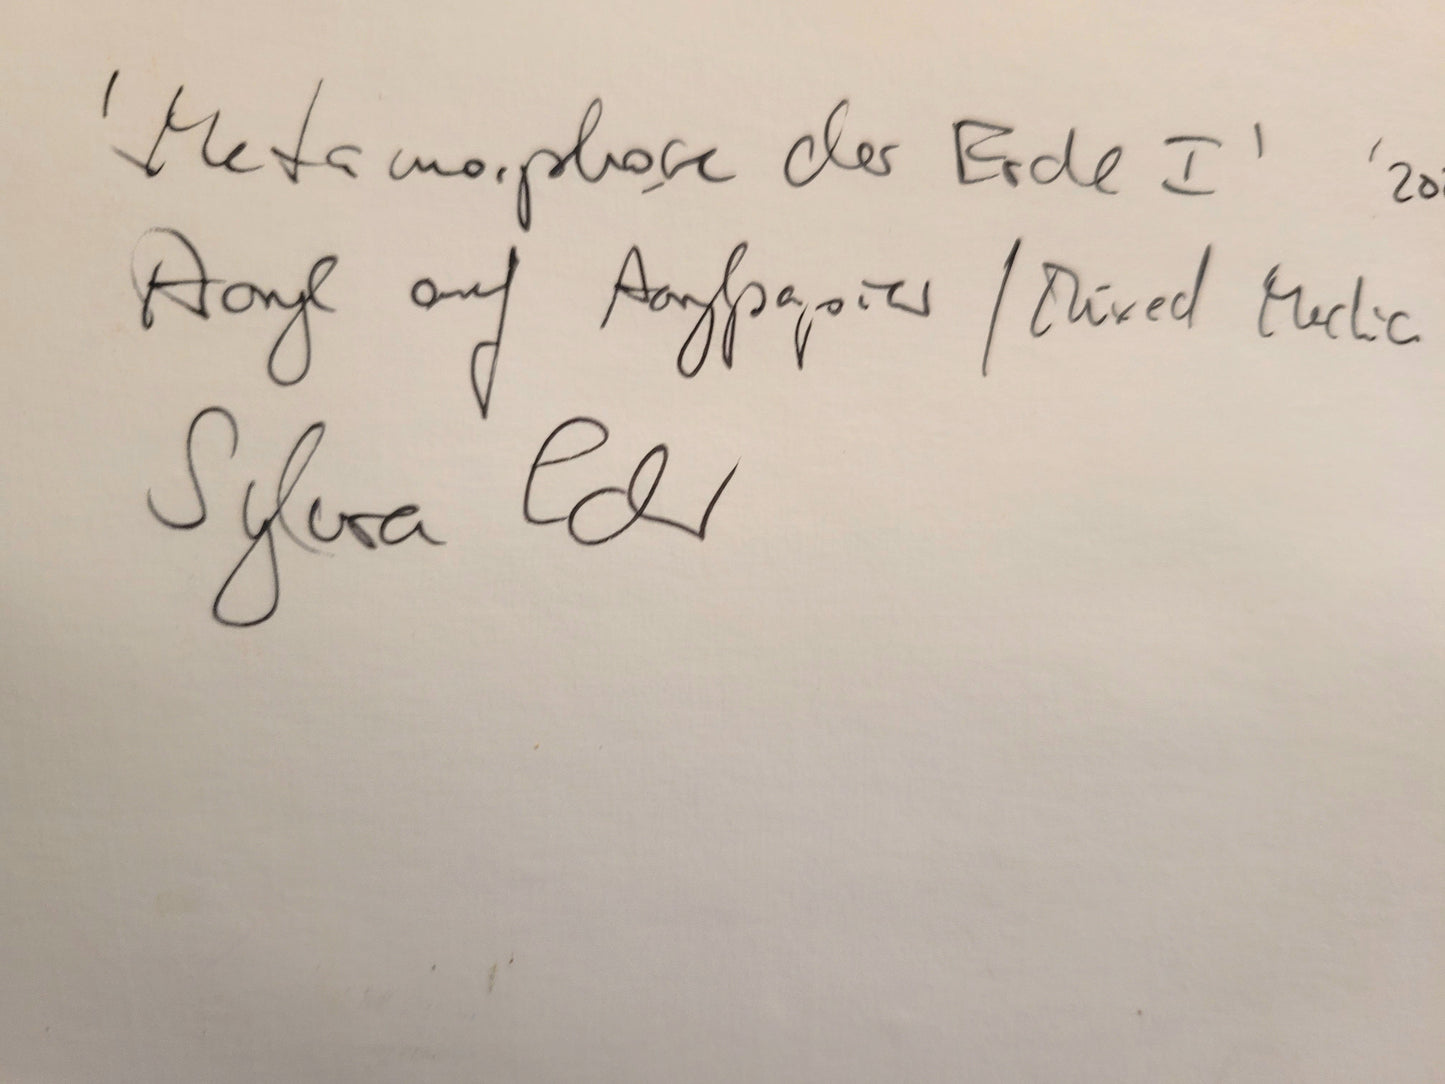 'Metamorphose der Erde I' '20
Acryl auf Acrylpapier / Mixed Media
Sylvia